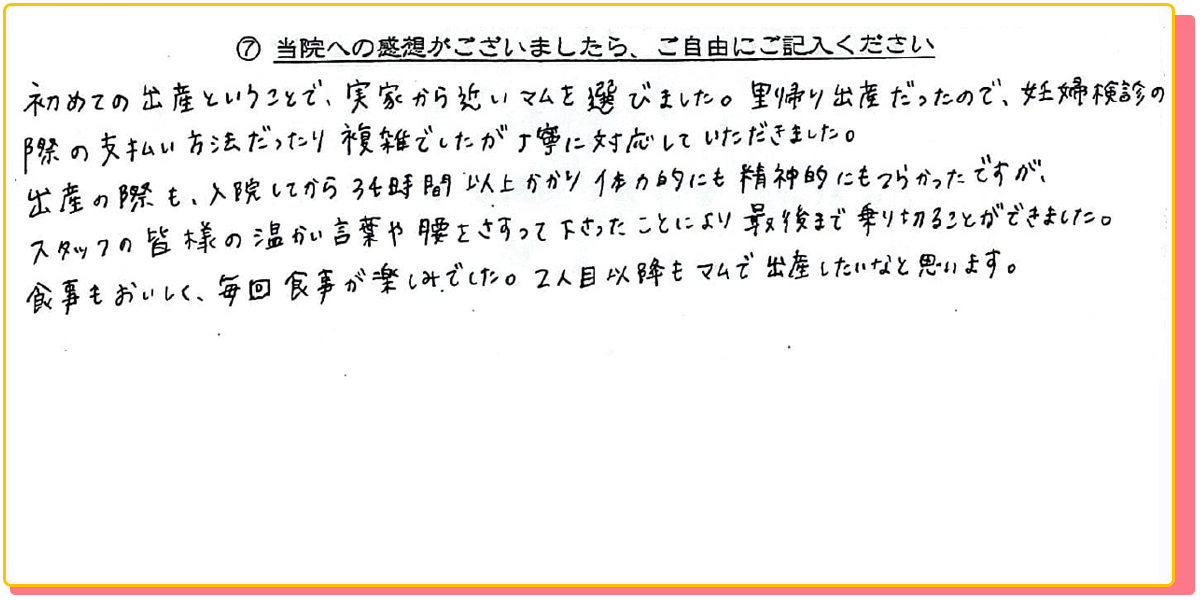 ⑦ 当院への感想がございましたら、ご自由にご記入ください
初めての出産ということで、実家から近いマムを選びました。里帰り出産だったので、妊婦検診の
際の支払い方法だったり複雑でしたが丁寧に対応していただきました。
出産の際も、入院してから34時間以上かかり体力的にも精神的にもつらかったですが、
スタッフの皆様の温かい言葉や腰をさすって下さったことにより最後まで乗り切ることができました。
食事もおいしく、毎回食事が楽しみでした。2人目以降もマムで出産したいなと思います。